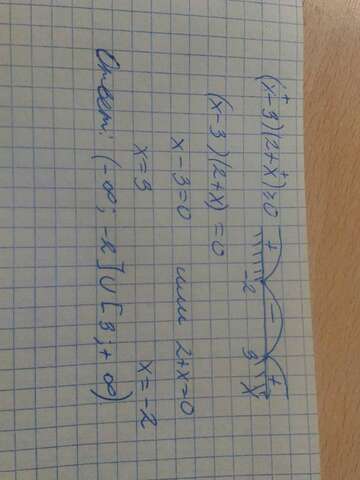 (x-3)(2+x)≥0
+ - +
-2 3 x
(x-3)(2+x)=0
x-3=0 или 2+x=0
x=3 x=-2
Ответ: (-∞; -2]∪[3;+∞)